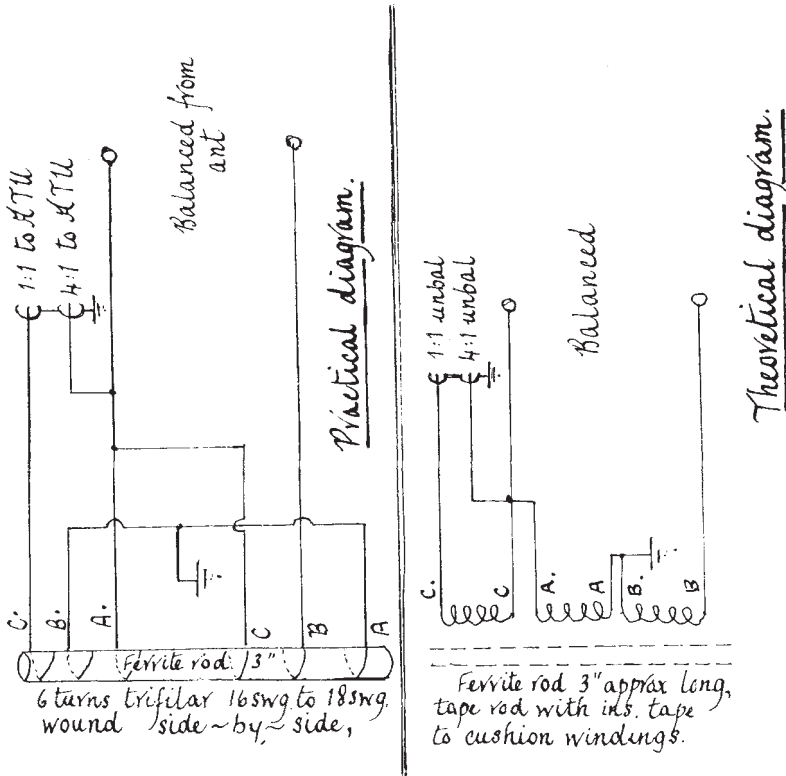 1:1 to ATU
4:1 to ATU
Balanced from
ant
Practical diagram.
C.
B.
A.
C
B
A
Ferrite rod. 3"
6 turns trifilar 16swg. to 18swg.
wound side~by~side,
1:1 unbal
4:1 unbal
Balanced
Theoretical diagram.
C.
C
A.
A
B.
B
Ferrite rod 3" approx long,
tape rod with ins. tape
to cushion windings.